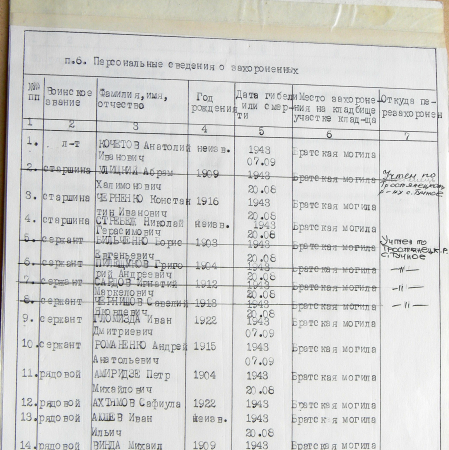 п.6. Персональные сведения о захороненных
№№ пп Воинское звание Фамилия, имя, отчество Год рождения Дата гибели или смерти Место захоронения на кладбище участке клад-ща Откуда перезахоронен
1 2 3 4 5 6 7
1. л-т КОЧЕТОВ Анатолий неизв. 1943 Братская могила
Иванович 07.09
2. старшина УЛИЦКИЙ Абрам 1909 1943 Братская могила Учтен по
Халимонович 20.08
3. старшина ЧЕРНЕНКО Констан 1916 1943 Братская могила
тин Иванович 20.08
4. старшина Николай неизв. 1943 Братская могила
Герасимович 20.08
5. сержант Борис 1903 1943 Братская могила Учтен по
Евгеньевич 20.08
6. сержант Григо 1904 1943 Братская могила -"-
рий Андреевич 20.08
7. сержант Игнатий 1912 1943 Братская могила -"-
Маркелович 20.08
8. сержант ЧЕРНЫШОВ Савелий 1918 1943 Братская могила -"-
20.08
9. сержант Иван 1922 1943 Братская могила
Дмитриевич 07.09
10. сержант РОМАНЕНКО Андрей 1915 1943 Братская могила
Анатольевич 07.09
11. рядовой АМИРИДЗЕ Петр 1904 1943 Братская могила
Михайлович 20.08
12. рядовой АХТЯМОВ Сафиула 1922 1943 Братская могила
13. рядовой Иван неизв. 1943 Братская могила
Ильич 20.08
14. рядовой ВИНДА Михаил 1909 1943 Братская могила